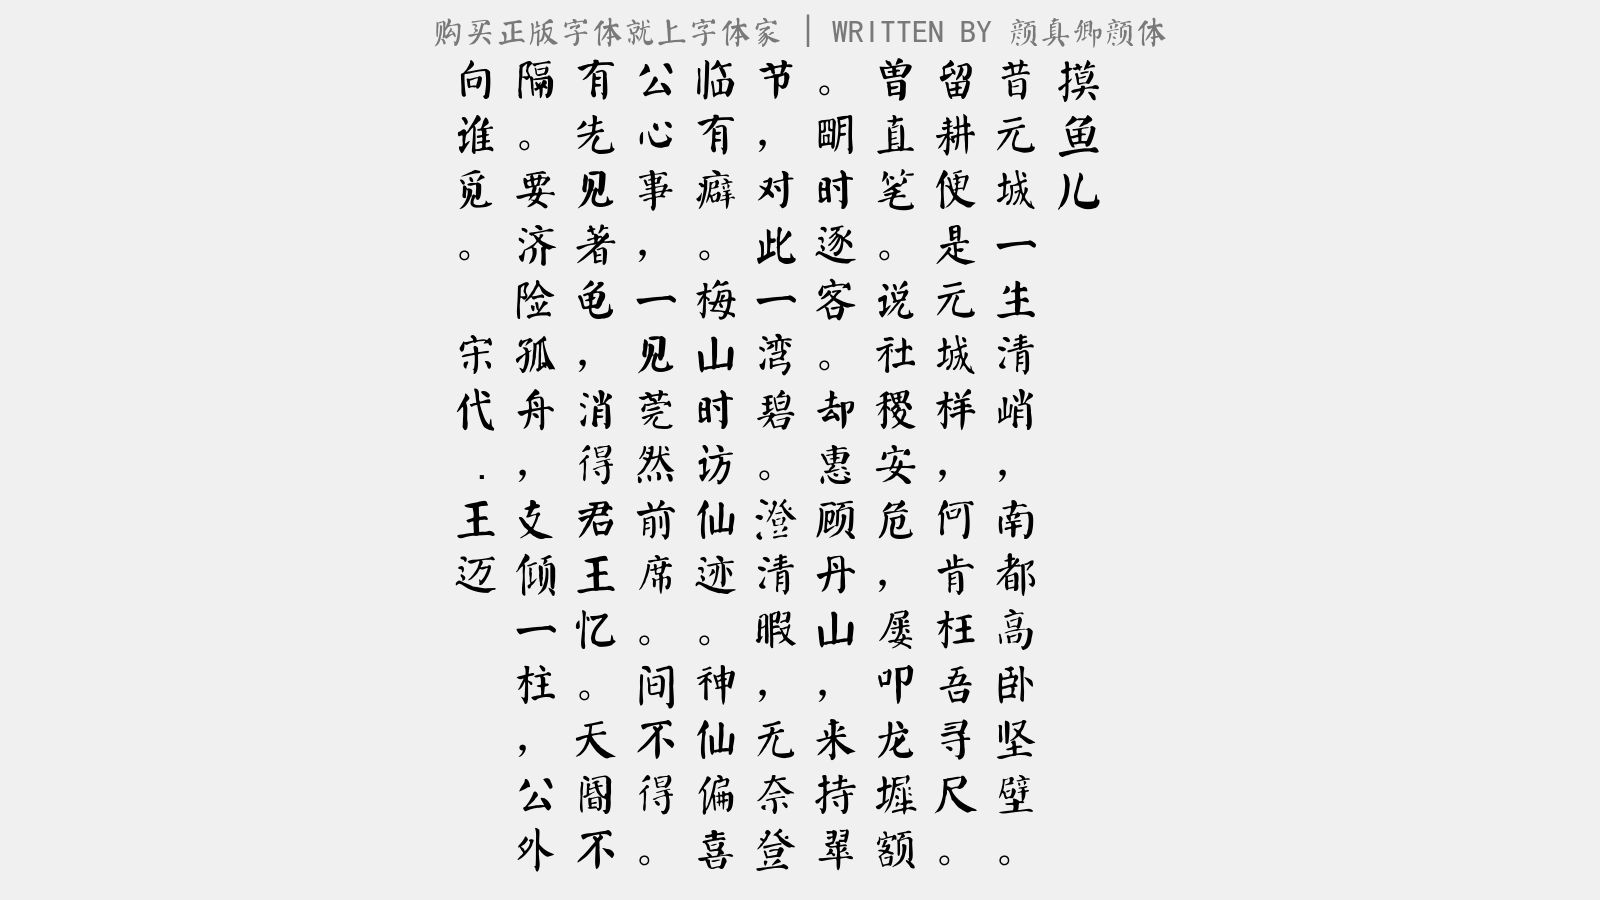 购买正版字体就上字体家 | WRITTEN BY 颜真卿颜体
摸鱼儿
昔元城一生清峭，南都高卧坚壁。
留耕便是元城样，何肯枉吾寻尺。
曾直笔。说社稷安危，屡叩龙墀额
。明时逐客。却惠顾丹山，来持翠
节，对此一湾碧。澄清暇，无奈登
临有癖。梅山时访仙迹。神仙偏喜
公心事，一见莞然前席。间不得。
有先见著龟，消得君王忆。天阍不
隔。要济险孤舟，支倾一柱，公外
向谁觅。 宋代.王迈